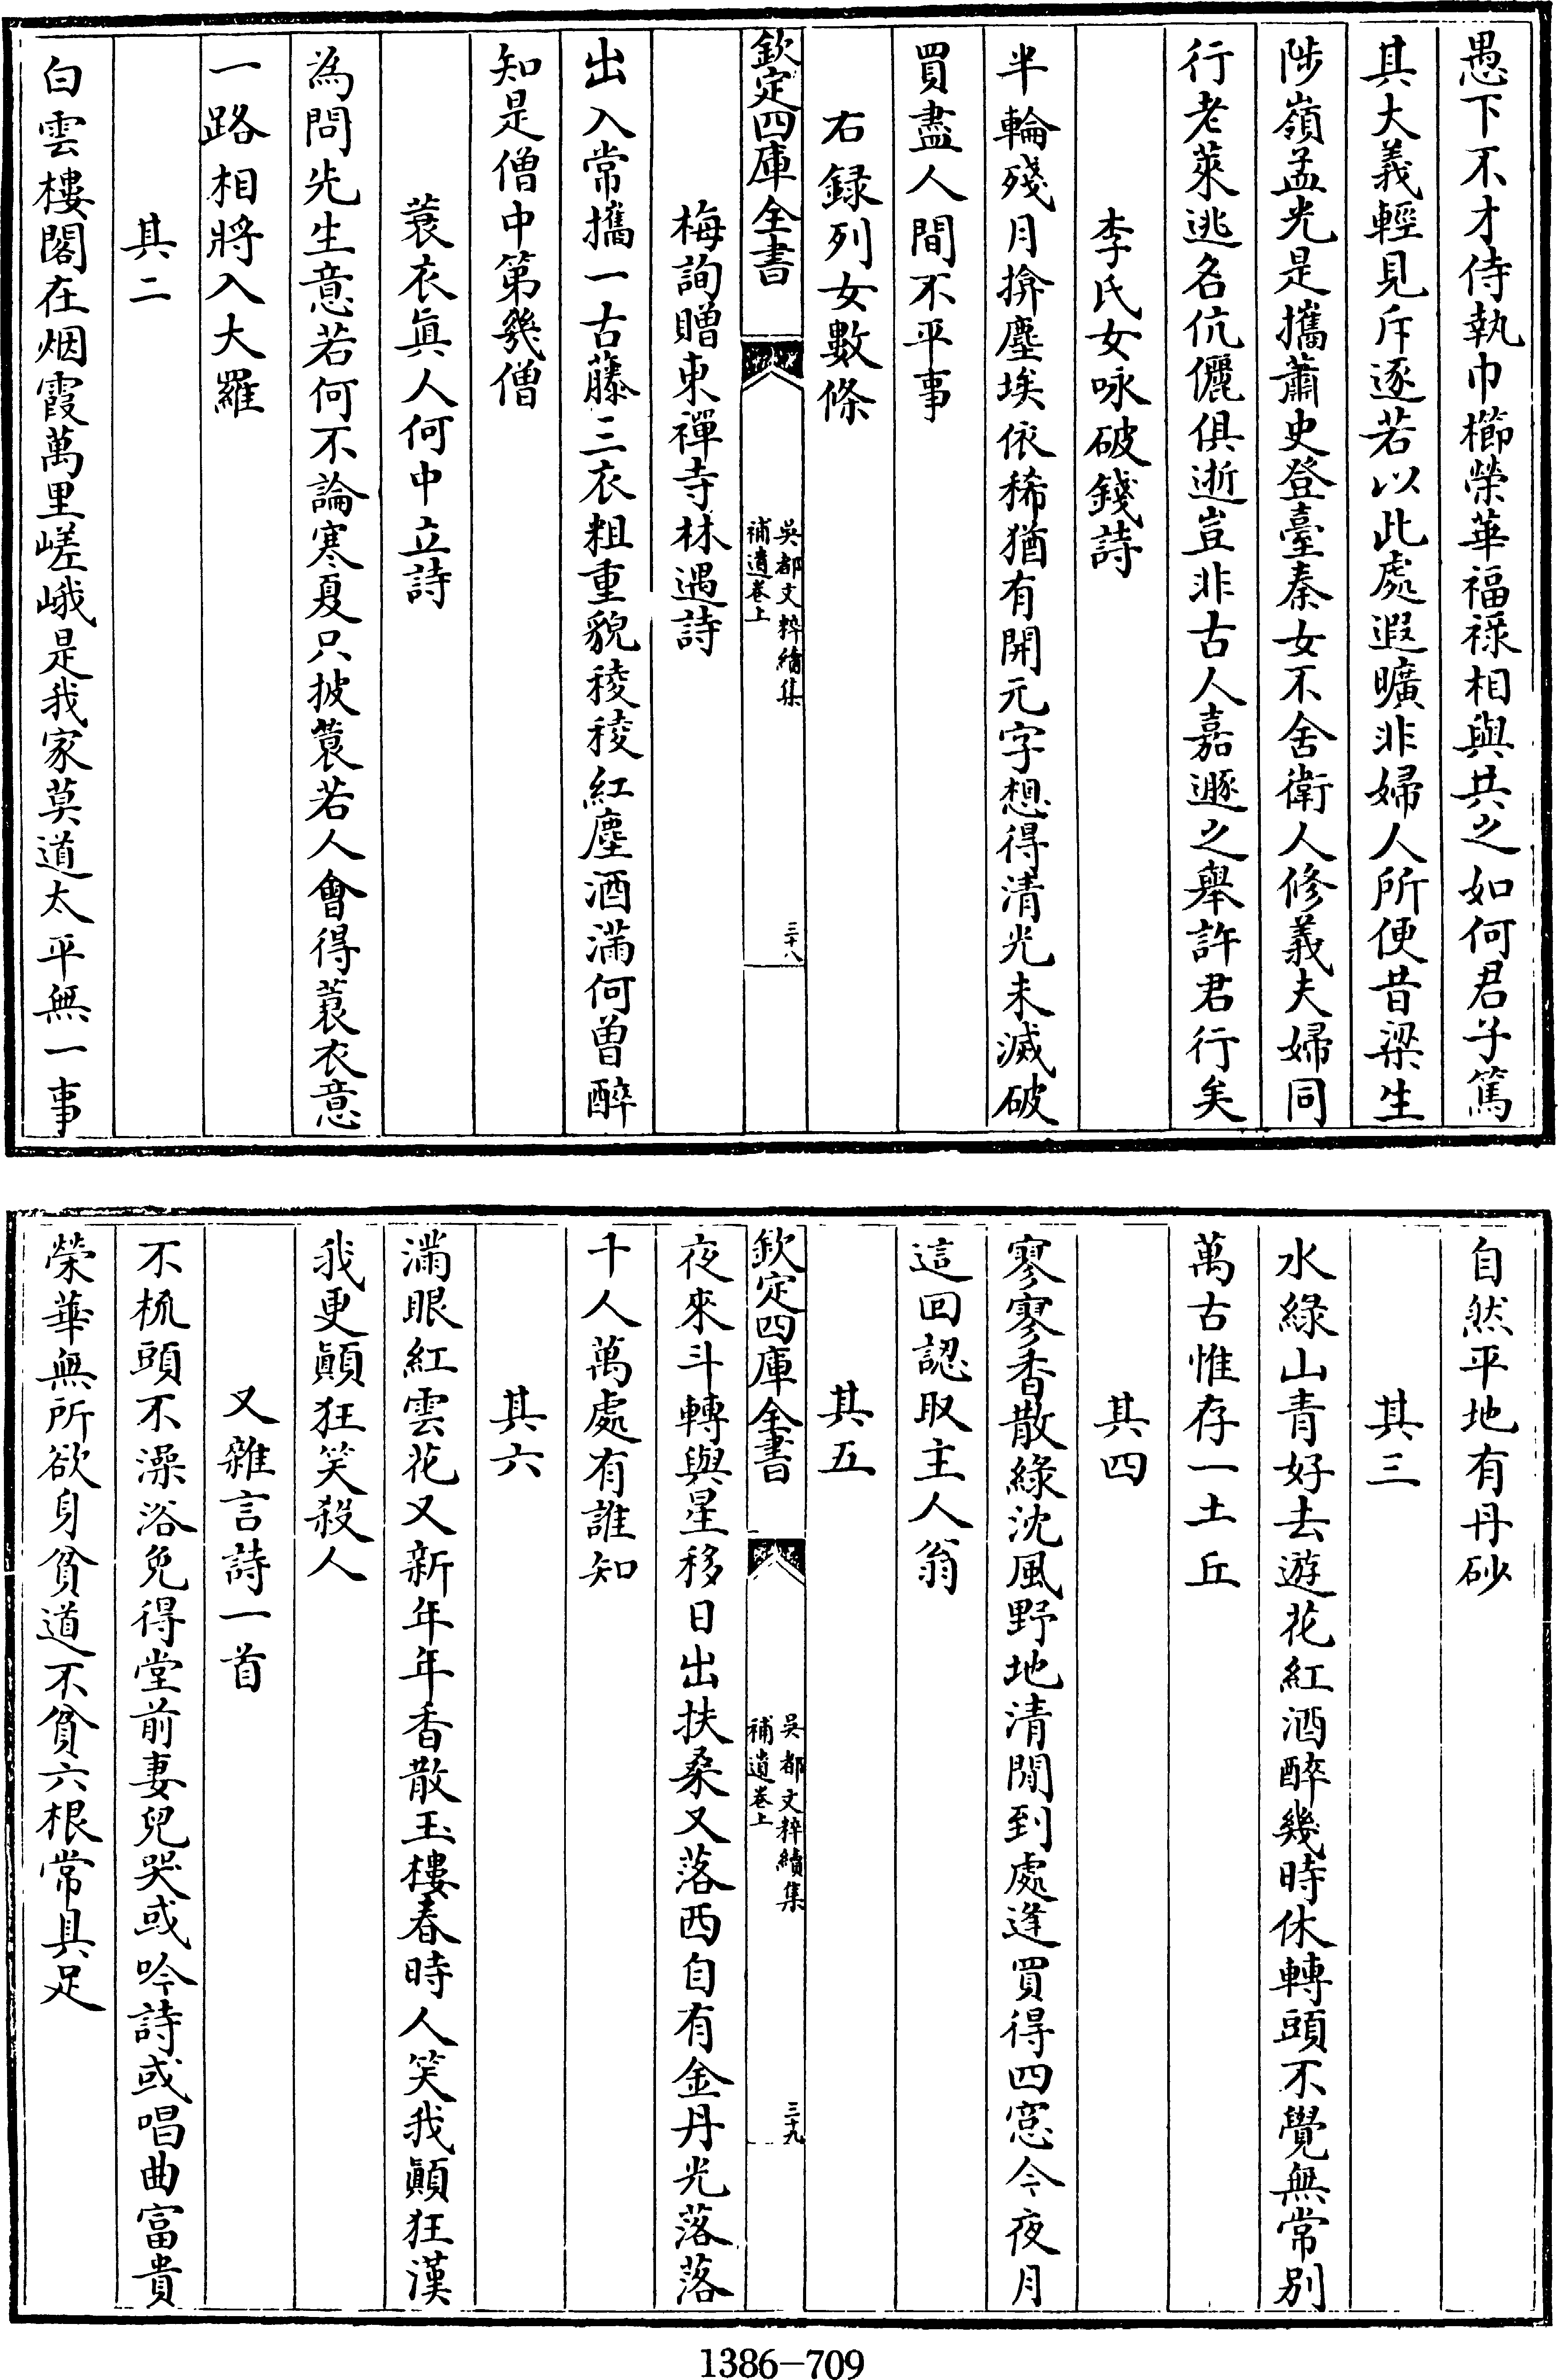 愚下不才侍執巾櫛榮華福祿相與共之如何君子篤
其大義輕見斥逐若以此處遐曠非婦人所便昔梁生
陟嶺孟光是攜蕭史登臺秦女不舍衛人修義夫婦同
行老萊逃名伉儷俱逝豈非古人嘉遯之舉許君行矣
李氏女咏破錢詩
半輪殘月揜塵埃依稀猶有開元字想得清光未滅破
買盡人間不平事
右録列女數條
欽定四庫全書
吳都文粹續集
補遺卷上
三十八
梅詢贈東禪寺林遇詩
出入常攜一古藤三衣粗重貌稜稜紅塵酒滿何曽醉
知是僧中第幾僧
蓑衣眞人何中立詩
為問先生意若何不論寒夏只披蓑若人會得蓑衣意
一路相將入大羅
其二
白雲樓閣在烟霞萬里嵯峨是我家莫道太平無一事
自然平地有丹砂
其三
水綠山青好去遊花紅酒醉幾時休轉頭不覺無常别
萬古惟存一土丘
其四
寥寥香散綠沈風野地清閒到處逢買得四窓今夜月
這回認取主人翁
其五
欽定四庫全書
吳都文粹續集
補遺卷上
三十九
夜來斗轉與星移日出扶桑又落西自有金丹光落落
千人萬處有誰知
其六
滿眼紅雲花又新年年香散玉樓春時人笑我顛狂漢
我更顛狂笑殺人
又雜言詩一首
不梳頭不澡浴免得堂前妻兒哭或吟詩或唱曲富貴
榮華無所欲身貧道不貧六根常具足
1386-709